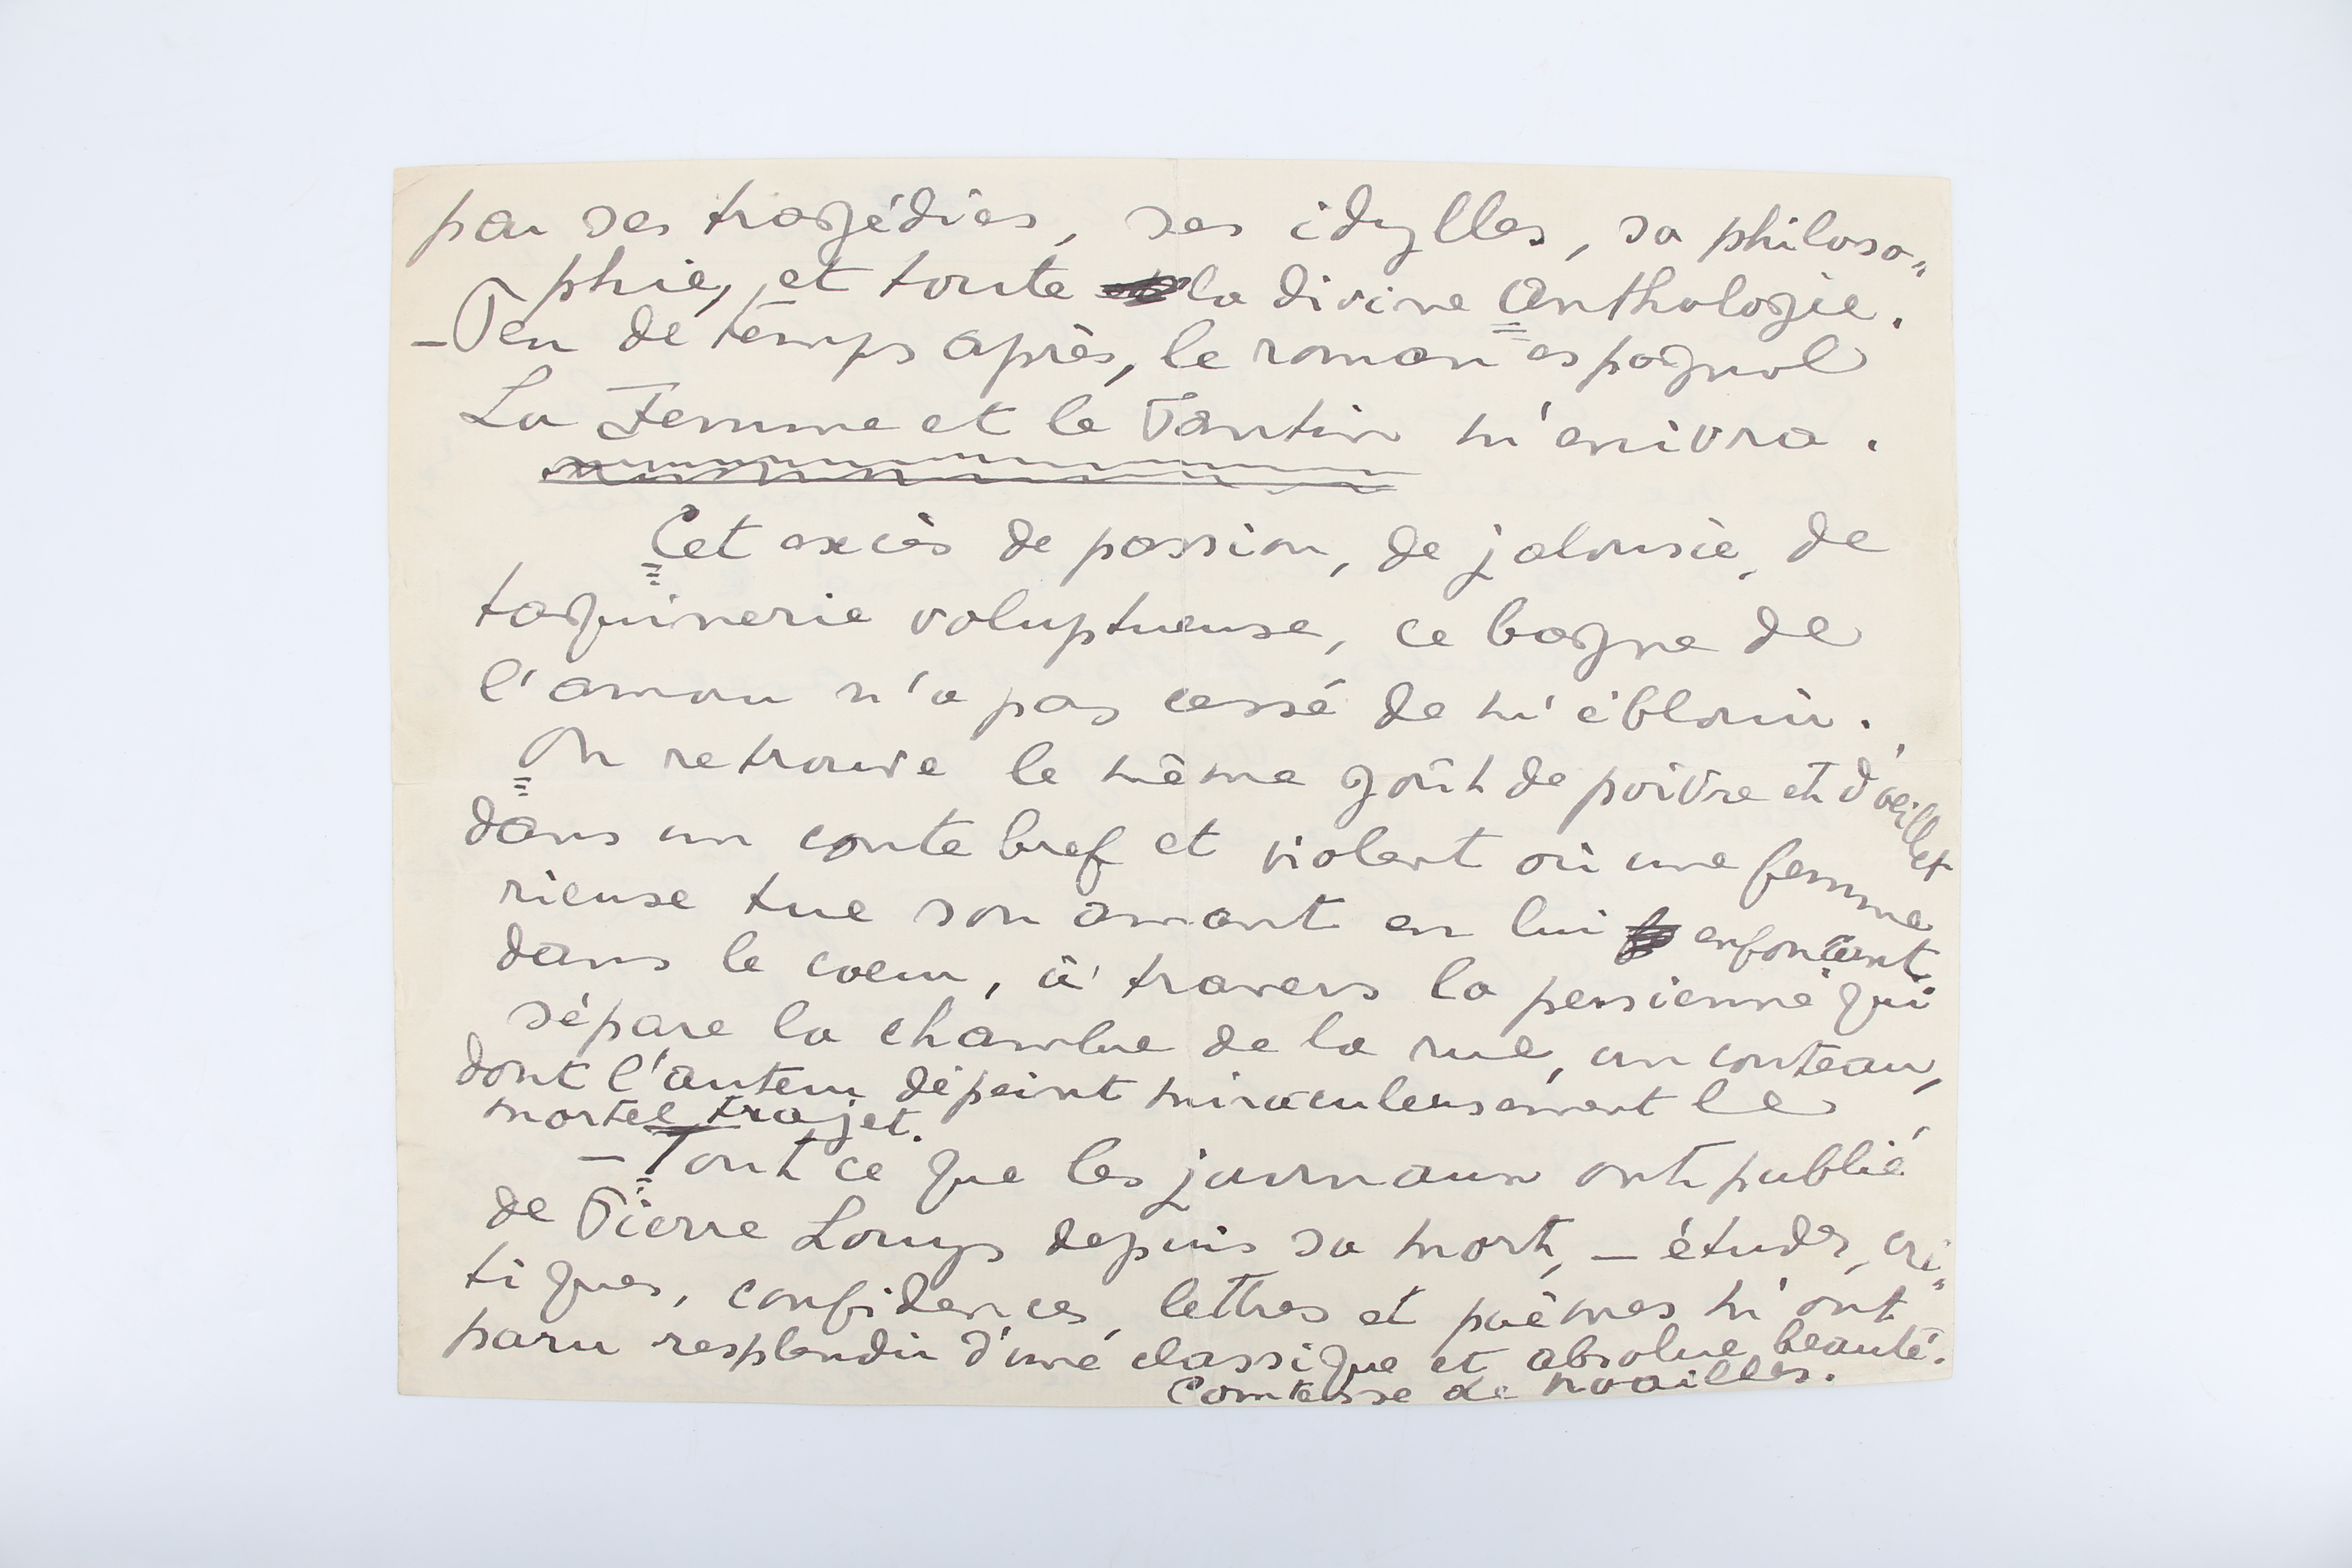 par ses tragédies, ses idylles, sa philoso„
phie, et toute la divine Anthologie.
– Peu de temps après, le roman espagnol
La Femme et le Pantin m'enivra.
Cet excès de passion, de jalousie, de
taquinerie voluptueuse, ce bagne de
l'amour n'a pas cessé de m'éblouir.
On retrouve le même goût de poivre et d'œillet
dans un conte bref et violent où une femme
rieuse tue son amant en lui enfonçant
dans le cœur, à travers la persienne qui
sépare la chambre de la rue, un couteau,
dont l'auteur dépeint miraculeusement le
mortel trajet.
– Tout ce que les journaux ont publié
de Pierre Louys depuis sa mort, – études, cri„
tiques, confidences, lettres et poèmes m'ont
paru resplendir d'une classique et absolue beauté.
Comtesse de Noailles.